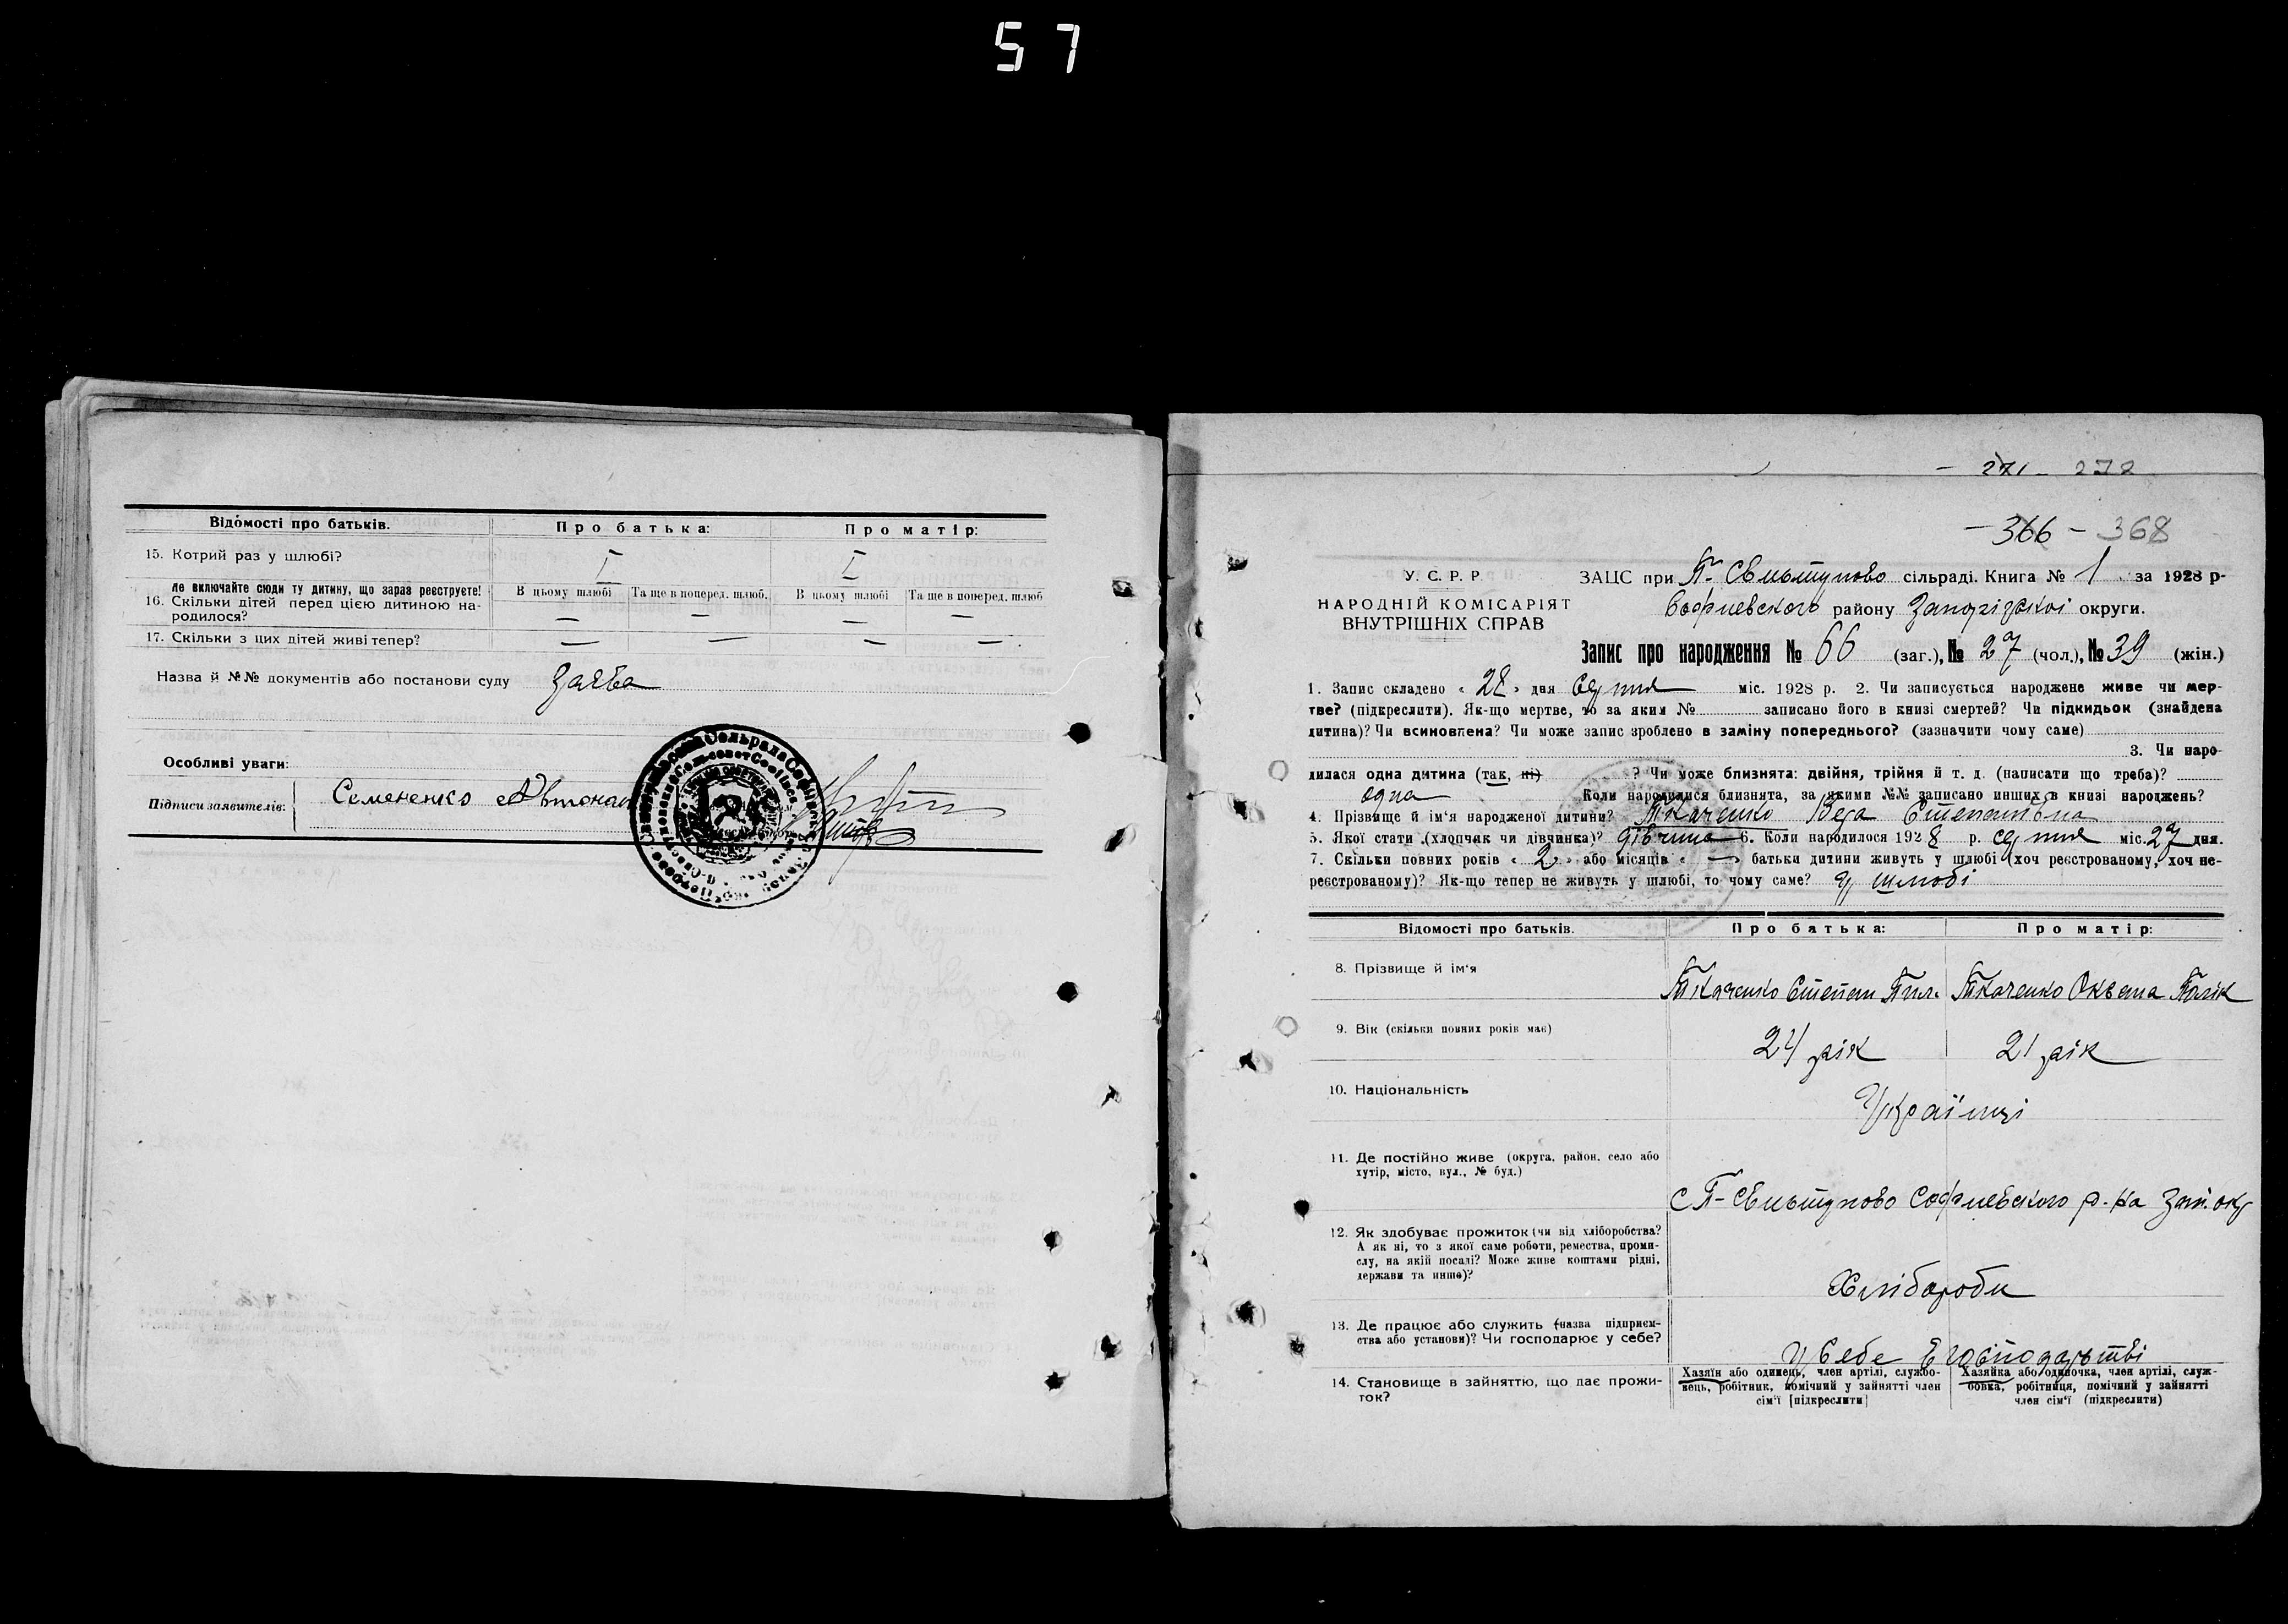 57
Відомості про батьків. Про батька: Про матір:
15. Котрий раз у шлюбі? I I
не включайте сюди ту дитину, що зараз реєструєте!
16. Скільки дітей перед цією дитиною народилося?
В цьому шлюбі Та ще в поперед. шлюб. В цьому шлюбі Та ще в поперед. шлюб
— — — —
17. Скільки з цих дітей живі тепер? — — — —
Назва й №№ документів або постанови суду Заява
Особливі уваги:
Підписи заявителів: Семененко
- 271 - 272
- 366 - 368
У. С. Р. Р.
НАРОДНІЙ КОМІСАРІЯТ
ВНУТРІШНІХ СПРАВ
ЗАЦС при П-Свистуново сільраді. Книга № 1 за 1928 р-
Софиевского району Запорізької округи.
Запис про народження № 66 (заг.), № 27 (чол.), № 39 (жін.)
1. Запис складено « 28 » дня Серпня міс. 1928 р. 2. Чи записується народжене живе чи мер-
тве? (підкреслити). Як-що мертве, то за яким № записано його в книзі смертей? Чи підкидьок (знайдена
дитина)? Чи всиновлена? Чи може запис зроблено в заміну попереднього? (зазначити чому саме)
3. Чи наро-
дилася одна дитина (так, ні) ? Чи може близнята: двійня, трійня й т. д. (написати що треба)?
одна Коли народилися близнята, за якими №№ записано инших в книзі народжень?
4. Прізвище й ім'я народженої дитини? Ткаченко Вера Степанівна
5. Якої стати (хлопчик чи дівчинка)? дівчина 6. Коли народилося 1928 р. серпня міс. 27 дня.
7. Скільки повних років « 2 » або місяців « — » батьки дитини живуть у шлюбі (хоч реєстрованому, хоч не-
реєстрованому)? Як-що тепер не живуть у шлюбі, то чому саме? У шлюбі
Відомості про батьків. Про батька: Про матір:
8. Прізвище й ім'я
Ткаченко Степан Пил. Ткаченко Оксана
9. Вік (скільки повних років має)
24 рік 21 рік
10. Національність
Українці
11. Де постійно живе (округа, район, село або
хутір, місто, вул., № буд.)
С П-Свистуново Софиевского р-на Зап. окр
12. Як здобуває прожиток (чи від хліборобства?
А як ні, то з якої саме роботи, ремества, проми-
слу, на якій посаді? Може живе коштами рідні,
держави та инше)?
Хлібороби
13. Де працює або служить (назва підприєм-
ства або установи)? Чи господарює у себе?
У Себе в господарьстві
14. Становище в зайняттю, що дає прожи-
ток?
Хазяїн або одинець, член артілі, службо-
вець, робітник, помічний у зайнятті член
сім'ї [підкреслити]
Хазяйка або одиночка, член артілі, служ-
бовка, робітниця, помічний у зайнятті
член сім'ї (підкреслити)